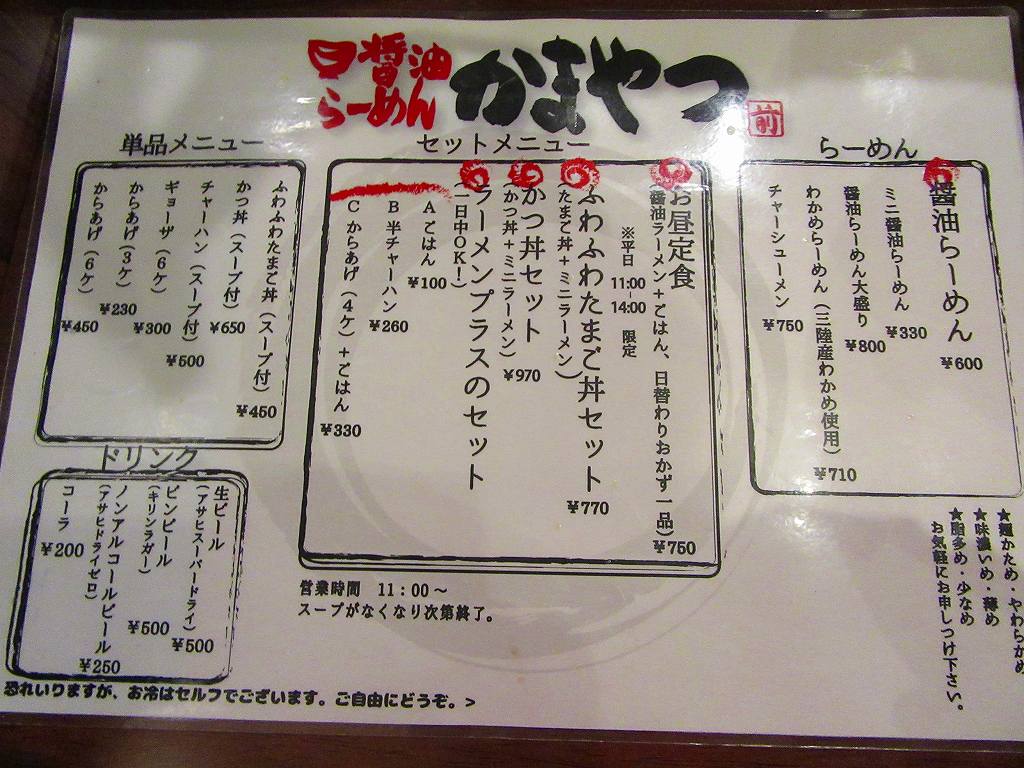 醤油
らーめん
かまやつ
前
らーめん
醤油らーめん ¥600
ミニ醤油らーめん ¥330
醤油らーめん大盛り ¥800
わかめらーめん（三陸産わかめ使用） ¥710
チャーシューメン ¥750
★麺かため・やわらかめ
★味濃いめ・薄め
★脂多め・少なめ
お気軽にお申しつけ下さい。
セットメニュー
お昼定食
（醤油ラーメン＋ごはん、日替わりおかず一品） ¥750
※平日 11:00 14:00 限定
ふわふわたまご丼セット
（たまご丼＋ミニラーメン） ¥770
かつ丼セット
（かつ丼＋ミニラーメン） ¥970
ラーメンプラスのセット
（一日中OK！）
A ごはん ¥100
B 半チャーハン ¥260
C からあげ（4ケ）＋ごはん ¥330
営業時間 11：00～
スープがなくなり次第終了。
単品メニュー
ふわふわたまご丼（スープ付） ¥450
かつ丼（スープ付） ¥650
チャーハン（スープ付） ¥500
ギョーザ（6ケ） ¥300
からあげ（3ケ） ¥230
からあげ（6ケ） ¥450
ドリンク
生ビール
（アサヒスーパードライ） ¥500
ビンビール
（キリンラガー） ¥500
ノンアルコールビール
（アサヒドライゼロ） ¥250
コーラ ¥200
恐れいりますが、お冷はセルフでございます。ご自由にどうぞ。>